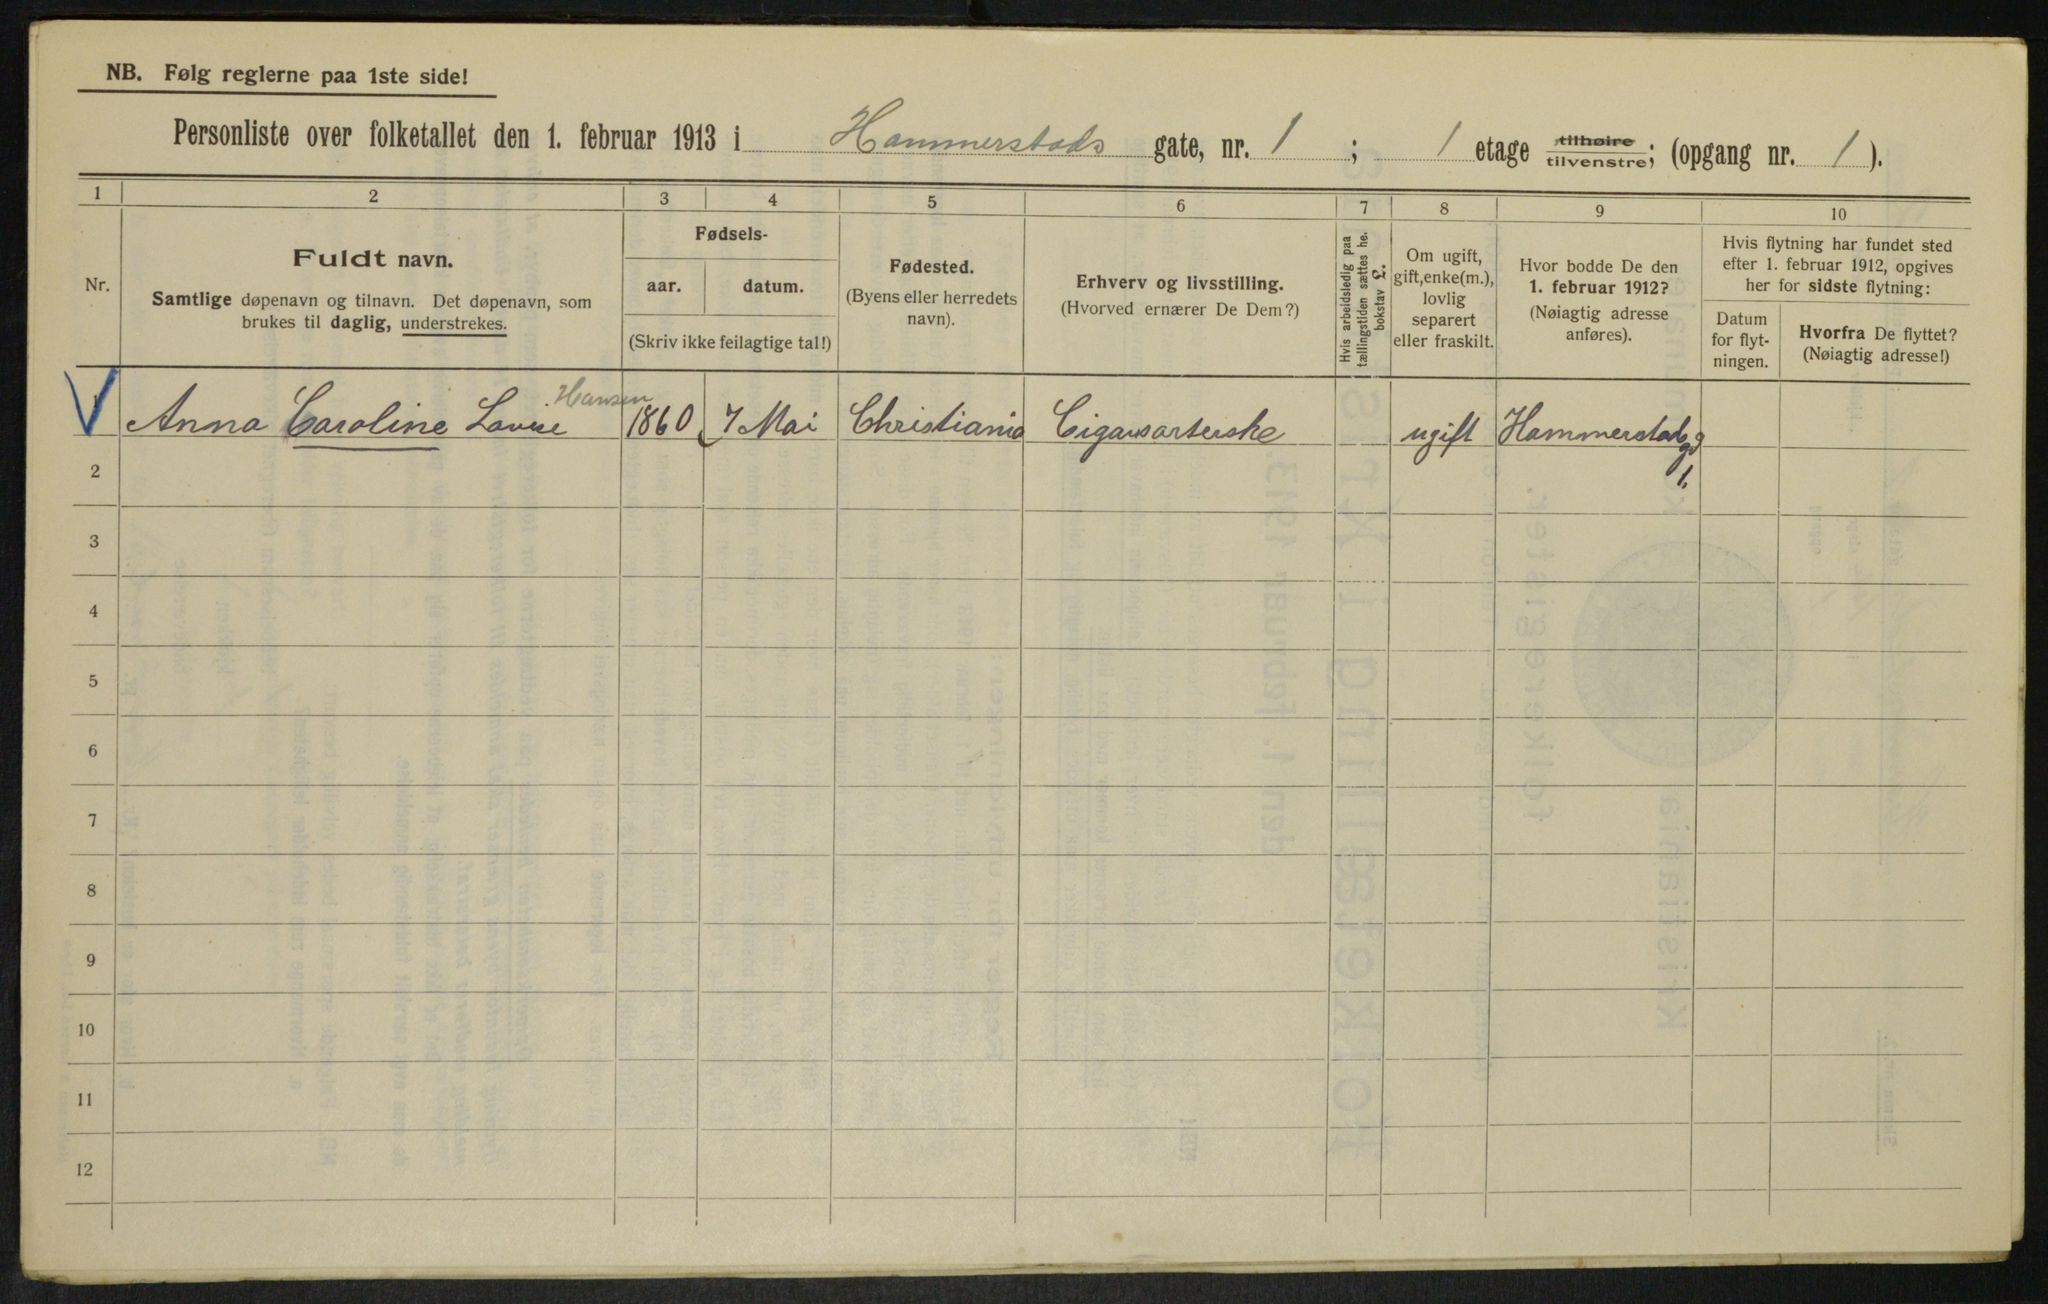 NB. Følg reglerne paa 1ste side!
Personliste over folketallet den 1. februar 1913 i Hammerstads gate, nr. 1 ; 1 etage tilhøire tilvenstre; (opgang nr. 1 ).
1 2 3 4 5 6 7 8 9 10
Nr.
Fuldt navn.
Samtlige døpenavn og tilnavn. Det døpenavn, som
brukes til daglig, understrekes.
Fødsels-
aar. datum.
(Skriv ikke feilagtige tal!)
Fødested.
(Byens eller herredets
navn).
Erhverv og livsstilling.
(Hvorved ernærer De Dem?)
Hvis arbeidsledig paa
tællingstiden sættes he.
bokstav £.
Om ugift,
gift, enke(m.),
lovlig
separert
eller fraskilt.
Hvor bodde De den
1. februar 1912?
(Nøiagtig adresse
anføres).
Hvis flytning har fundet sted
efter 1. februar 1912, opgives
her for sidste flytning:
Datum
for flyt-
ningen.
Hvorfra De flyttet?
(Nøiagtig adresse!)
Hansen
1 Anna Caroline Lovise 1860 7 Mai Christiania Cigarsorterske ugift Hammerstadsgd
1,
2
3
4
5
6
7
8
9
10
11
12